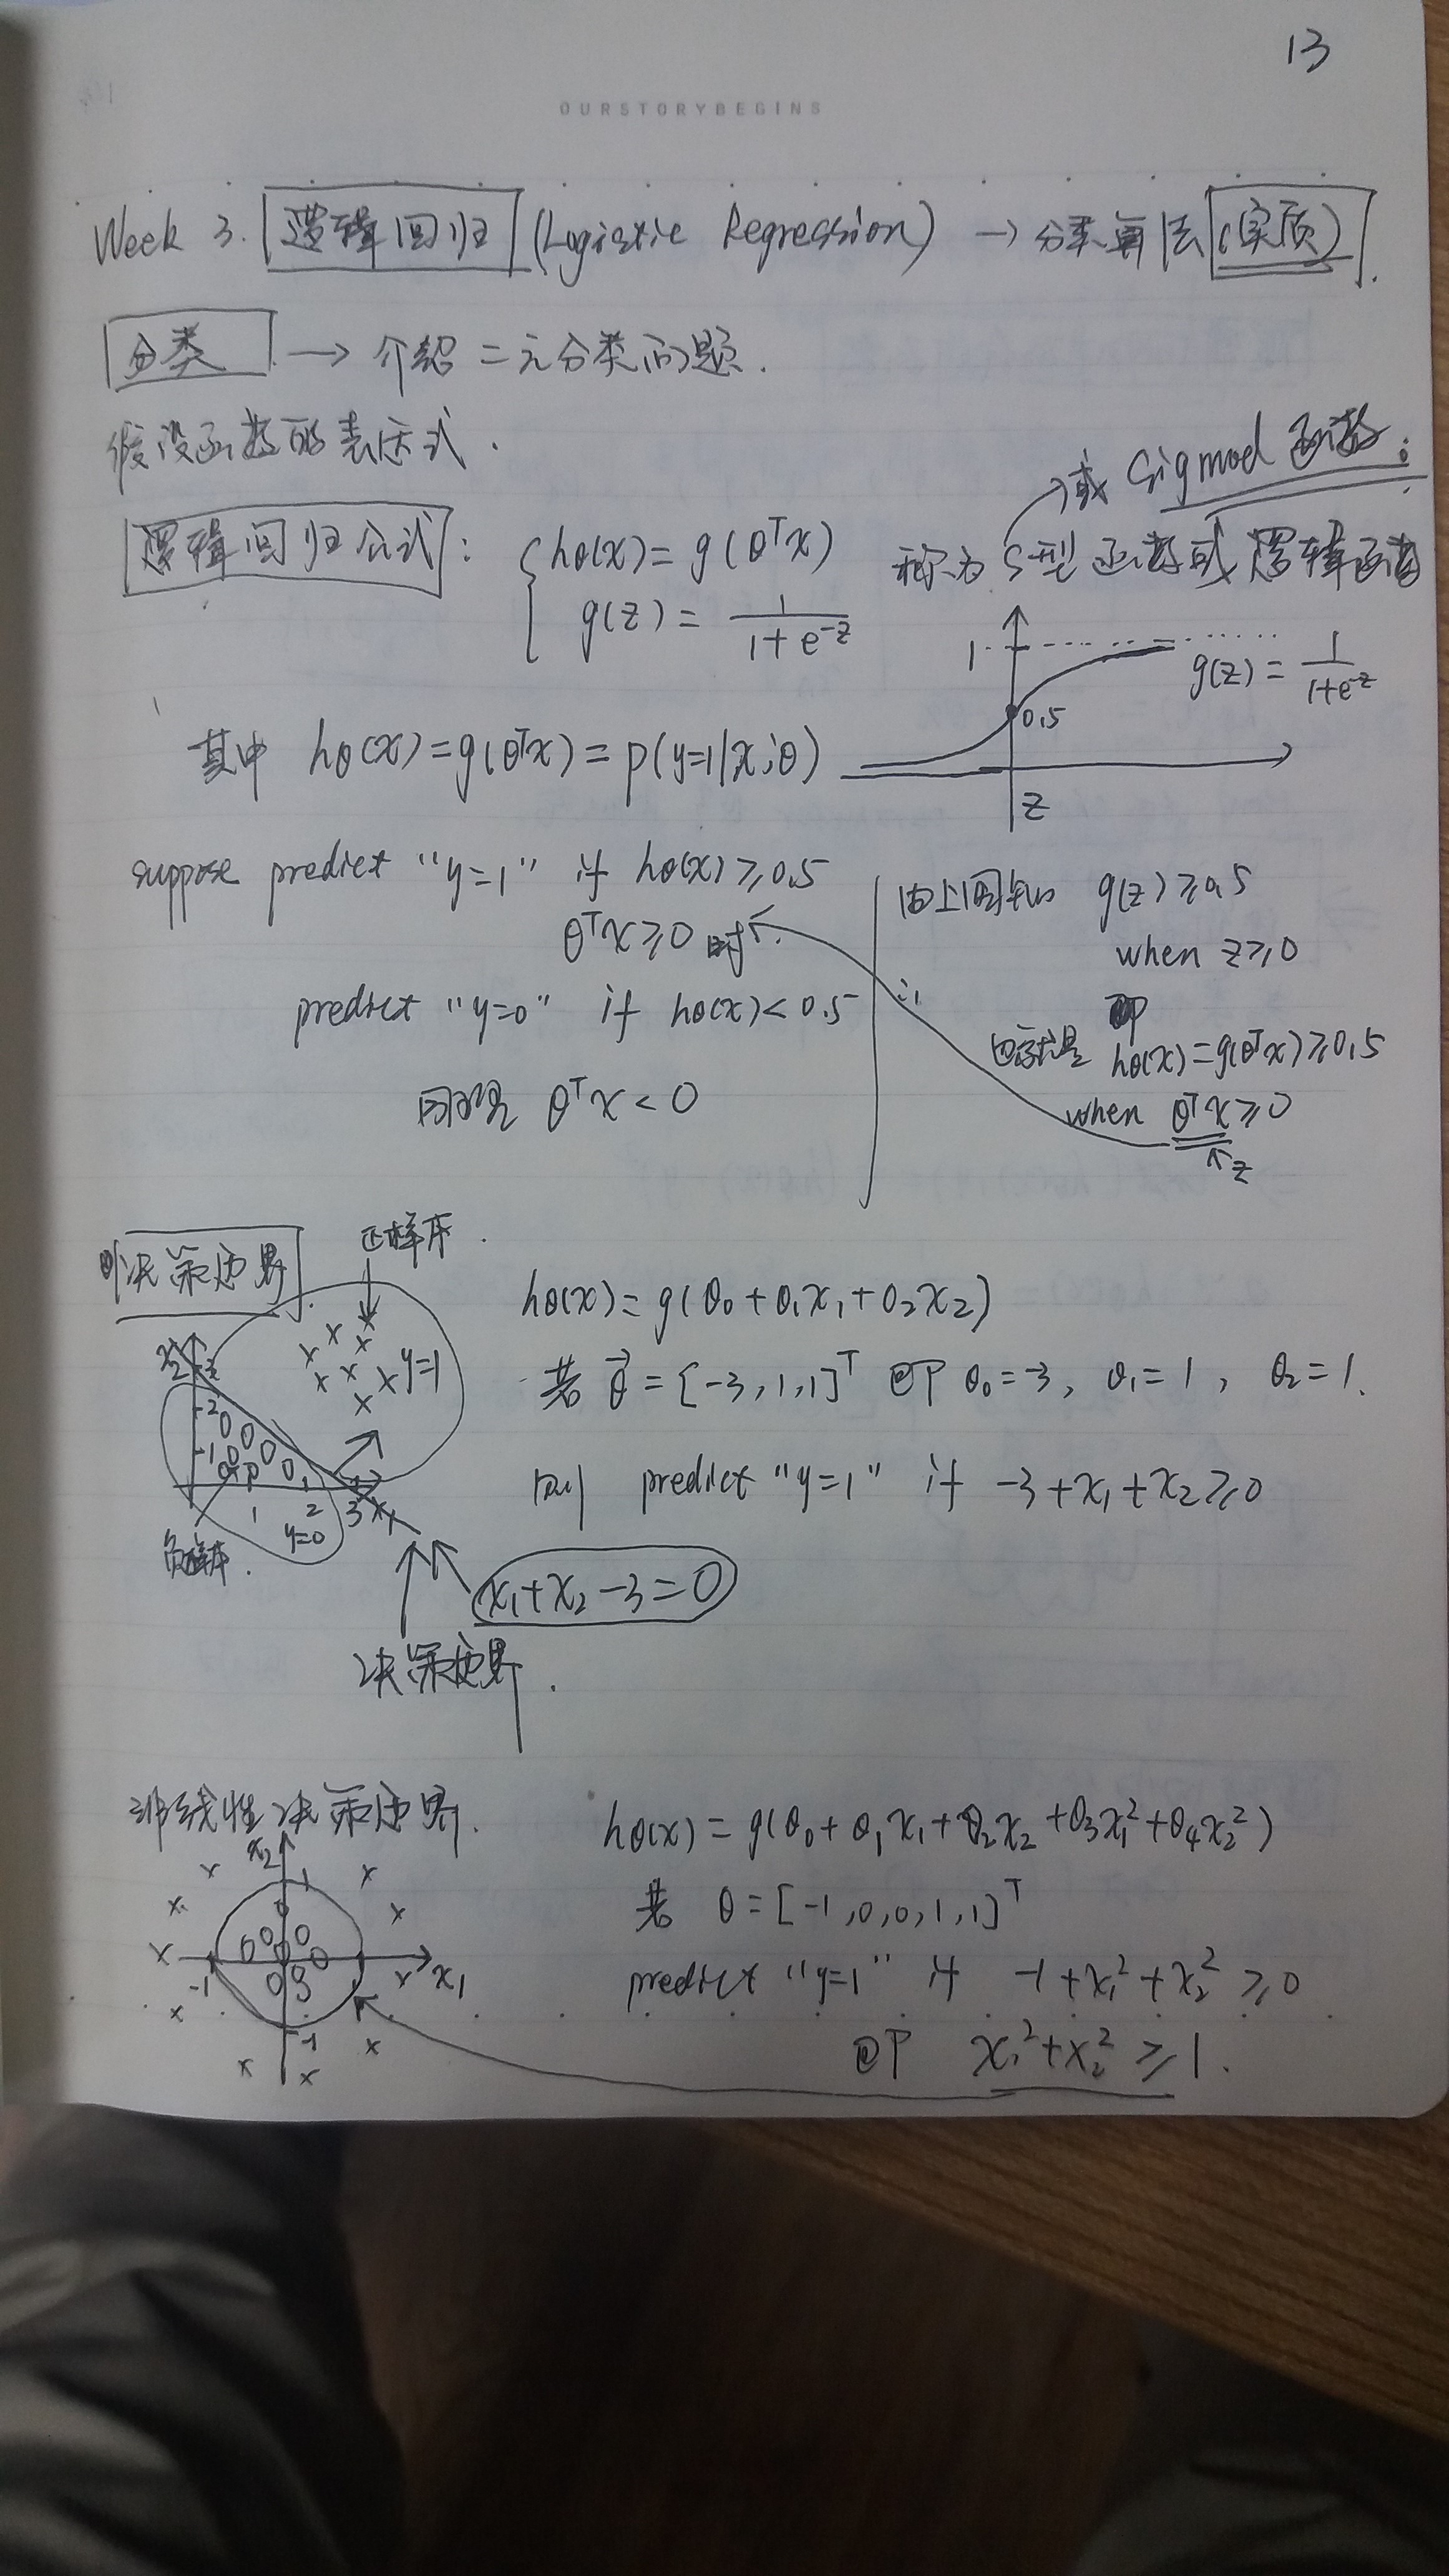 13
OURSTORYBEGINS
Week 3. 逻辑回归 (Logistic Regression) → 分类算法(实质).
分类 → 介绍二元分类问题.
假设函数的表达式.
或 Sigmod 函数:
逻辑回归公式: { hθ(x) = g(θᵀx)
g(z) = 1/(1+e^-z)
称为 S型函数或逻辑函数
1
0.5
z
g(z) = 1/(1+e^-z)
其中 hθ(x) = g(θᵀx) = p(y=1|x;θ)
suppose predict "y=1" if hθ(x) ≥ 0.5
θᵀx ≥ 0 时
predict "y=0" if hθ(x) < 0.5
θᵀx < 0
由上图知 g(z) ≥ 0.5
when z ≥ 0
也就是 hθ(x) = g(θᵀx) ≥ 0.5
when θᵀx ≥ 0
z
决策边界
正样本.
x2 3
2
1
1 2 3 x1
y=1
y=0
负样本.
hθ(x) = g(θ0 + θ1x1 + θ2x2)
若 θ⃗ = [-3, 1, 1]ᵀ 即 θ0 = -3, θ1 = 1, θ2 = 1.
则 predict "y=1" if -3 + x1 + x2 ≥ 0
x1 + x2 - 3 = 0
决策边界.
非线性决策边界.
x2
1
-1
x1
-1
hθ(x) = g(θ0 + θ1x1 + θ2x2 + θ3x1² + θ4x2²)
若 θ = [-1, 0, 0, 1, 1]ᵀ
predict "y=1" if -1 + x1² + x2² ≥ 0
即 x1² + x2² ≥ 1.